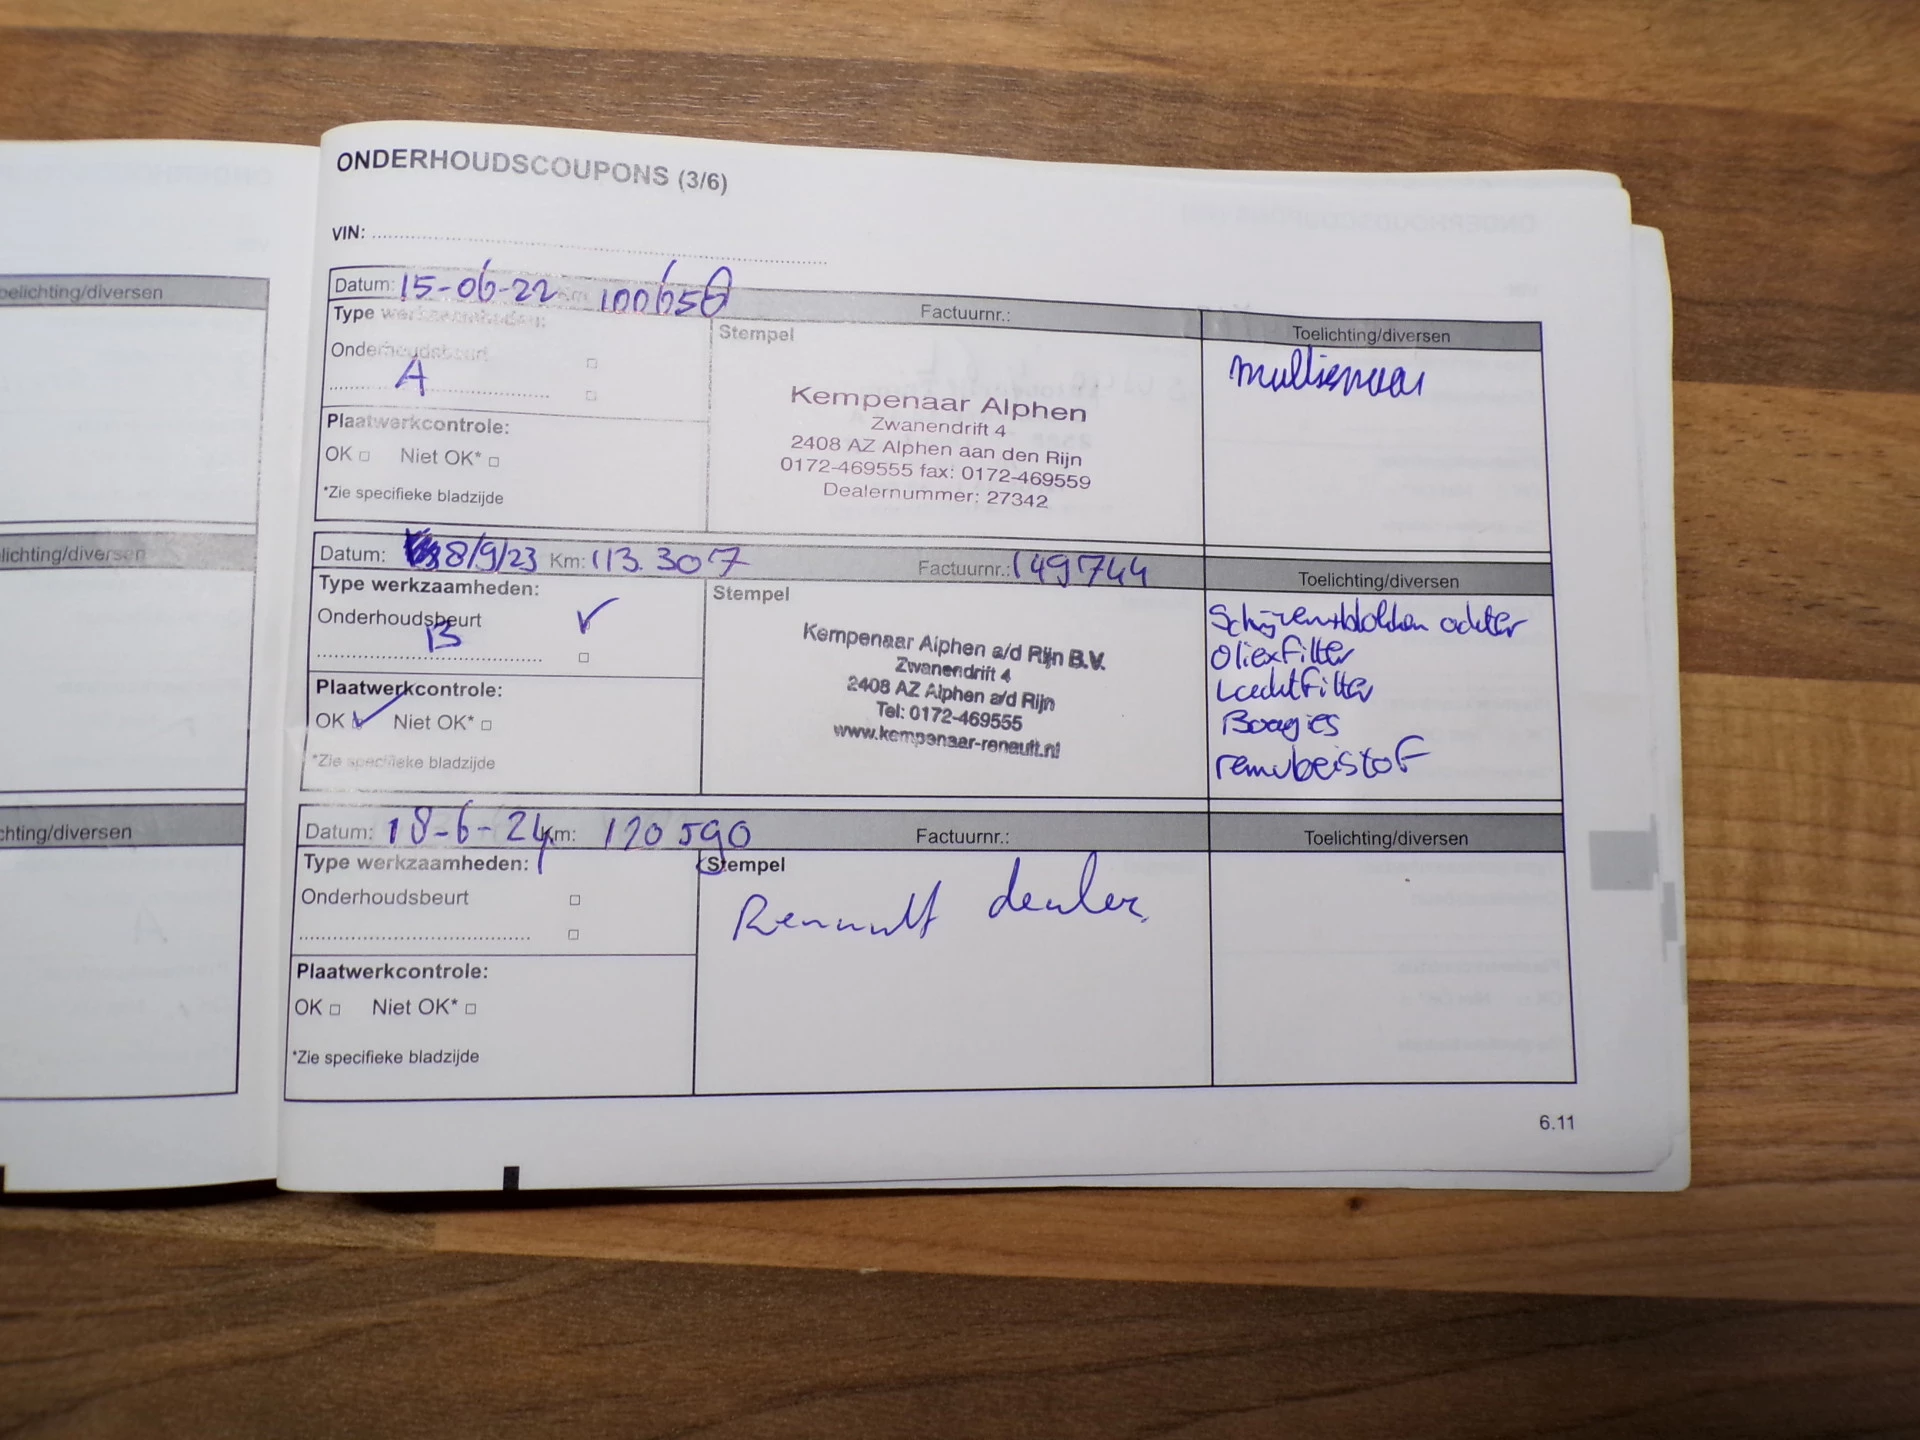 ONDERHOUDSCOUPONS (3/6)
VIN:
Datum: 15-06-22 Km 100650
Factuurnr.:
Toelichting/diversen
Type werkzaamheden:
Onderhoudsbeurt
A
Plaatwerkcontrole:
OK Niet OK*
*Zie specifieke bladzijde
Stempel
Kempenaar Alphen
Zwanendrift 4
2408 AZ Alphen aan den Rijn
0172-469555 fax: 0172-469559
Dealernummer: 27342
Datum: 8/9/23 Km: 113.307
Factuurnr.: 149744
Toelichting/diversen
Type werkzaamheden:
Onderhoudsbeurt
B
Plaatwerkcontrole:
OK Niet OK*
*Zie specifieke bladzijde
Stempel
Kempenaar Alphen a/d Rijn B.V.
Zwanendrift 4
2408 AZ Alphen a/d Rijn
Tel: 0172-469555
www.kempenaar-renault.nl
Schijven+blokken achter
Oliexfilter
Luchtfilter
Bougies
remvloeistof
Datum: 18-6-24 Km: 120590
Factuurnr.:
Toelichting/diversen
Type werkzaamheden:
Onderhoudsbeurt
Plaatwerkcontrole:
OK Niet OK*
*Zie specifieke bladzijde
Stempel
Renault dealer
6.11
oelichting/diversen
lichting/diversen
chting/diversen